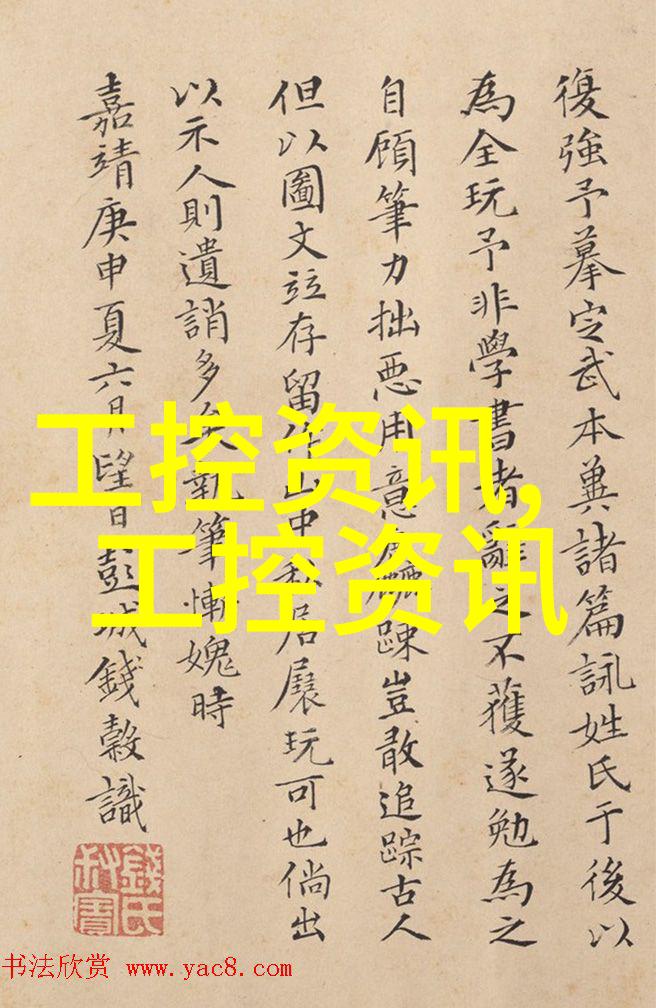 復強予摹定武本兼諸篇詠姓氏于後以
為全玩予非學書者辭之不獲遂勉為之
自顧筆力拙惡用意麤踈豈敢追踪古人
但以圖文竝存留作山中私居展玩可也倘出
以示人則遺誚多矣執筆慚媿時
嘉靖庚申夏六月望日彭城錢榖識
錢氏
工控资讯,
工控资讯
书法欣赏 www.yac8.com